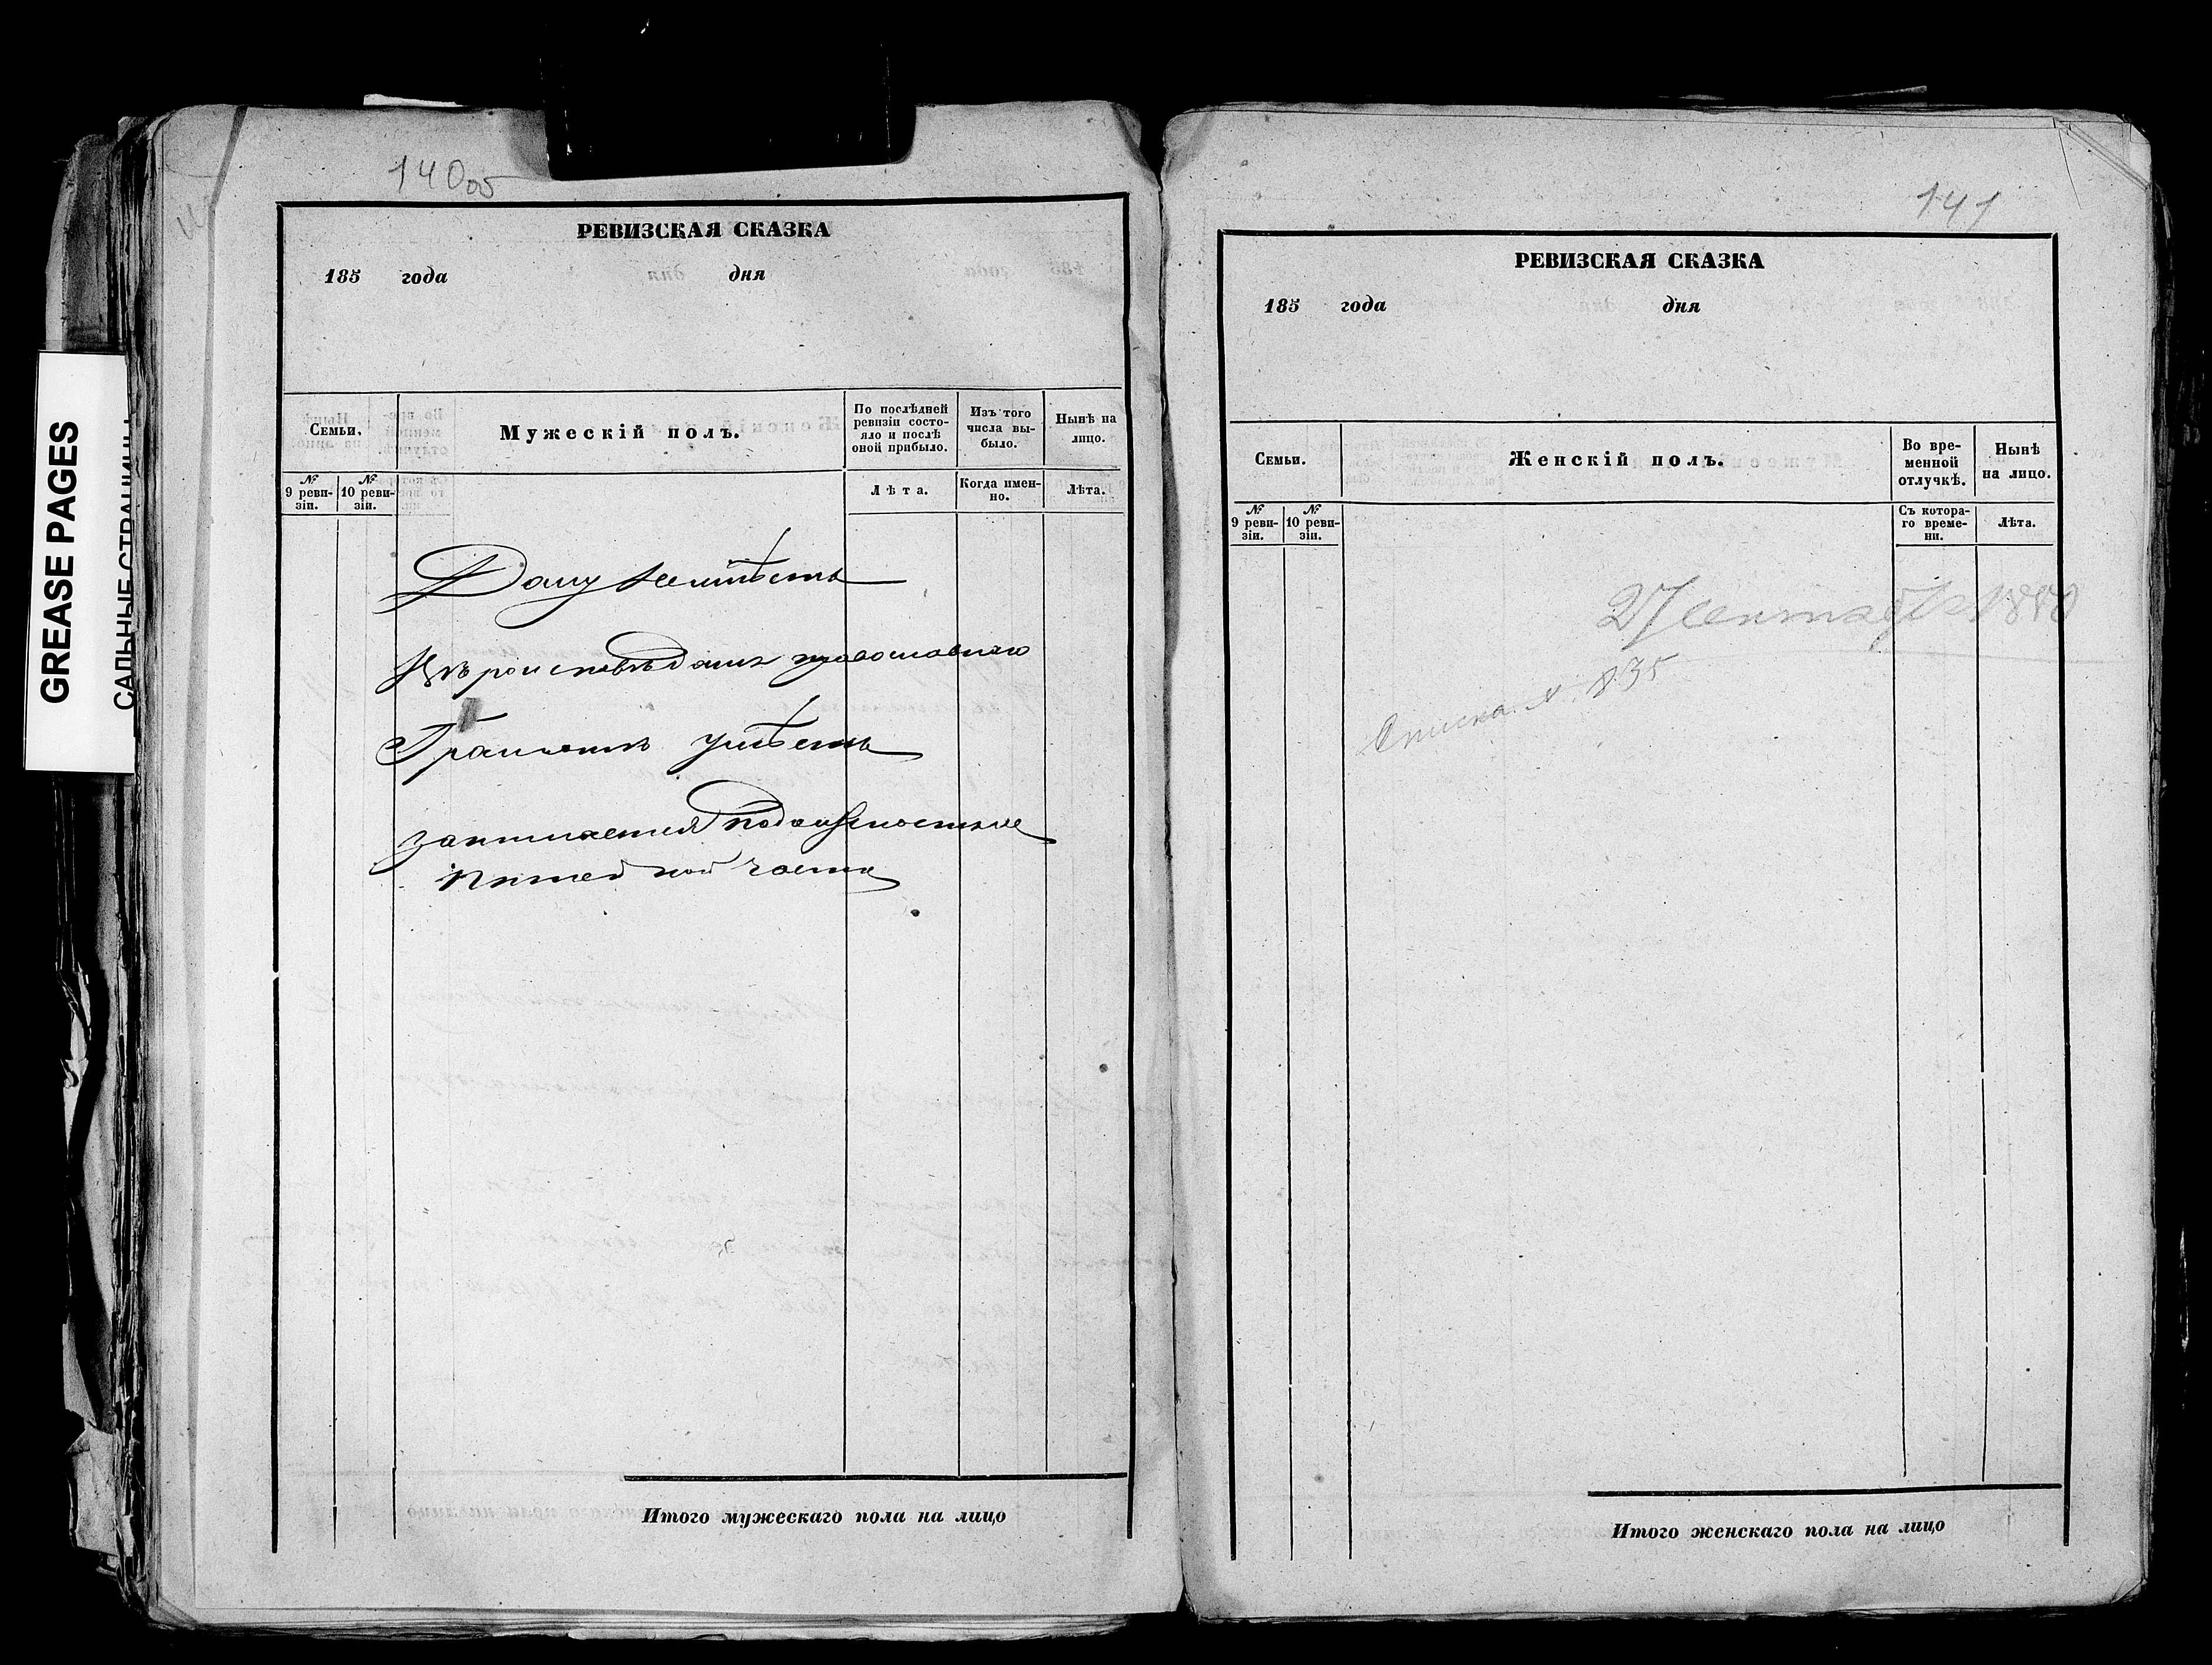 GREASE PAGES
САЛЬНЫЕ СТРАНИЦЫ
140об
РЕВИЗСКАЯ СКАЗКА
185 года дня
Семьи.
Мужескій полъ.
По послѣдней ревизіи состояло и послѣ оной прибыло.
Изъ того числа выбыло.
Нынѣ на лицо.
№ 9 ревизіи.
№ 10 ревизіи.
Лѣта.
Когда именно.
Лѣта.
Дому неимѣетъ
Вѣроисповѣдания православнаго
Грамотѣ умѣетъ
занимается
части
Итого мужескаго пола на лицо
141
РЕВИЗСКАЯ СКАЗКА
185 года дня
Семьи.
Женскій полъ.
Во временной отлучкѣ.
Нынѣ на лицо.
№ 9 ревизіи.
№ 10 ревизіи.
Съ котораго времени.
Лѣта.
27 сентября 1858
Списка № 835
Итого женскаго пола на лицо